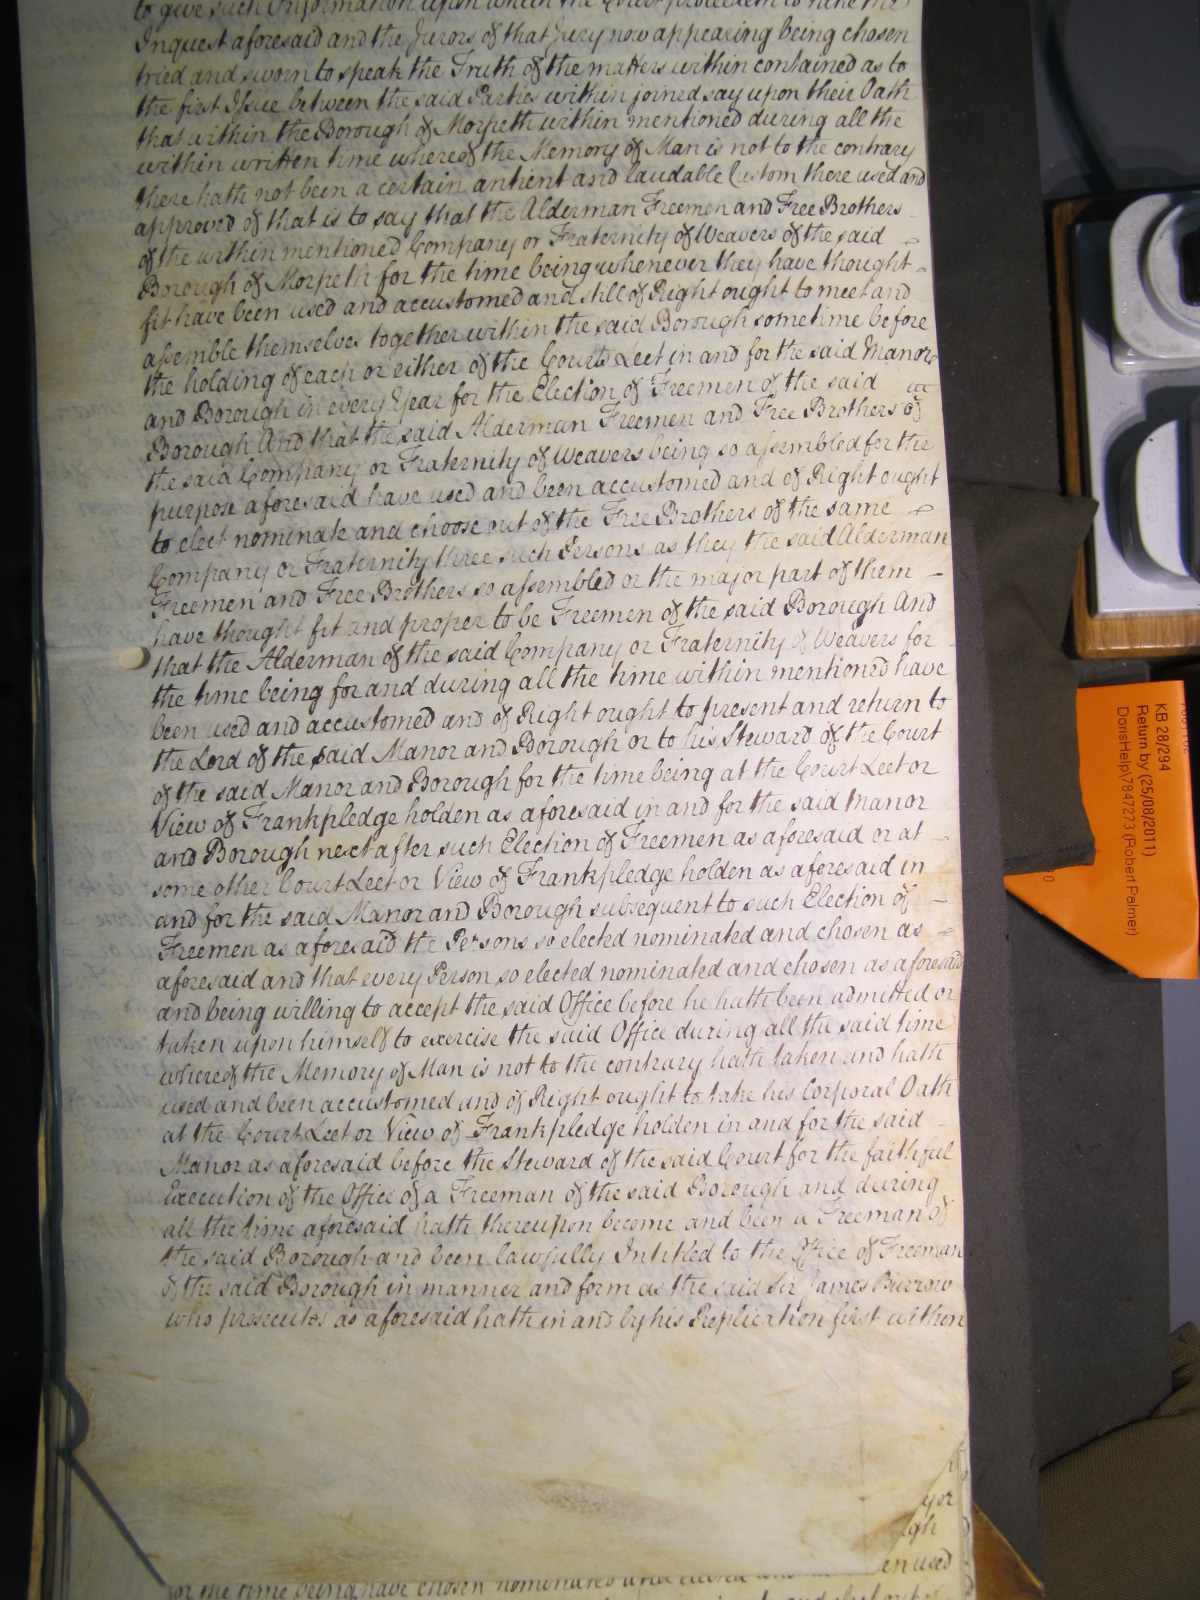 to give such Information upon which the Court proceedeth to take the
Inquest aforesaid and the Jurors of that Jury now appearing being chosen
tried and sworn to speak the Truth of the matters within contained as to
the first Issue between the said Parties within joined say upon their Oath
that within the Borough of Morpeth within mentioned during all the
within written time whereof the Memory of Man is not to the contrary
there hath not been a certain antient and laudable Custom there used and
approved of that is to say that the Alderman Freemen and Free Brothers
of the within mentioned Company or Fraternity of Weavers of the said
Borough of Morpeth for the time being whenever they have thought
fit have been used and accustomed and still of Right ought to meet and
assemble themselves together within the said Borough sometime before
the holding of each or either of the Courts Leet in and for the said Manor
and Borough in every Year for the Election of Freemen of the said
Borough And that the said Alderman Freemen and Free Brothers of
the said Company or Fraternity of Weavers being so assembled for the
purpose aforesaid have used and been accustomed and of Right ought
to elect nominate and choose out of the Free Brothers of the same
Company or Fraternity three such Persons as they the said Alderman
Freemen and Free Brothers so assembled or the major part of them
have thought fit and proper to be Freemen of the said Borough And
that the Alderman of the said Company or Fraternity of Weavers for
the time being for and during all the time within mentioned have
been used and accustomed and of Right ought to present and return to
the Lord of the said Manor and Borough or to his Steward of the Court
of the said Manor and Borough for the time being at the Court Leet or
View of Frankpledge holden as aforesaid in and for the said Manor
and Borough next after such Election of Freemen as aforesaid or at
some other Court Leet or View of Frankpledge holden as aforesaid in
and for the said Manor and Borough subsequent to such Election of
Freemen as aforesaid the Persons so elected nominated and chosen as
aforesaid and that every Person so elected nominated and chosen as aforesaid
and being willing to accept the said Office before he hath been admitted or
taken upon himself to exercise the said Office during all the said time
whereof the Memory of Man is not to the contrary hath taken and hath
used and been accustomed and of Right ought to take his Corporal Oath
at the Court Leet or View of Frankpledge holden in and for the said
Manor as aforesaid before the Steward of the said Court for the faithful
Execution of the Office of a Freeman of the said Borough and during
all the time aforesaid hath thereupon become and been a Freeman of
the said Borough and been lawfully Intitled to the Office of Freeman
of the said Borough in manner and form as the said Sir James Burrow
who prosecutes as aforesaid hath in and by his Replication first within
yor
gh
en used
for the time being have chosen nominated and elected and
KB 28/294
Return by (25/08/2011)
DorisHelp\7847273 (Robert Palmer)